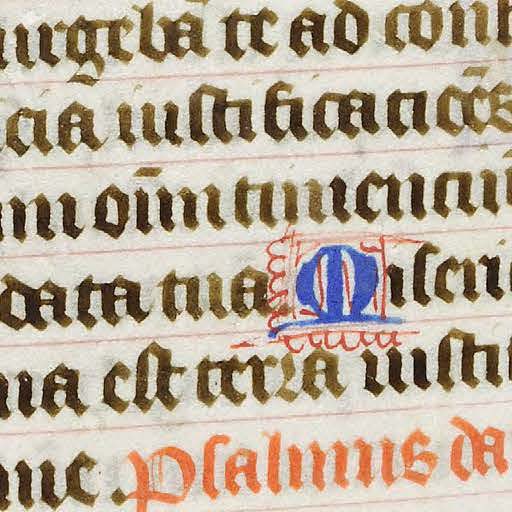 urgebā te ad conf
cia iustificaticōs
m oīm timenciū
data tua Miseri
na est terra iustifi
me. Psalmus da